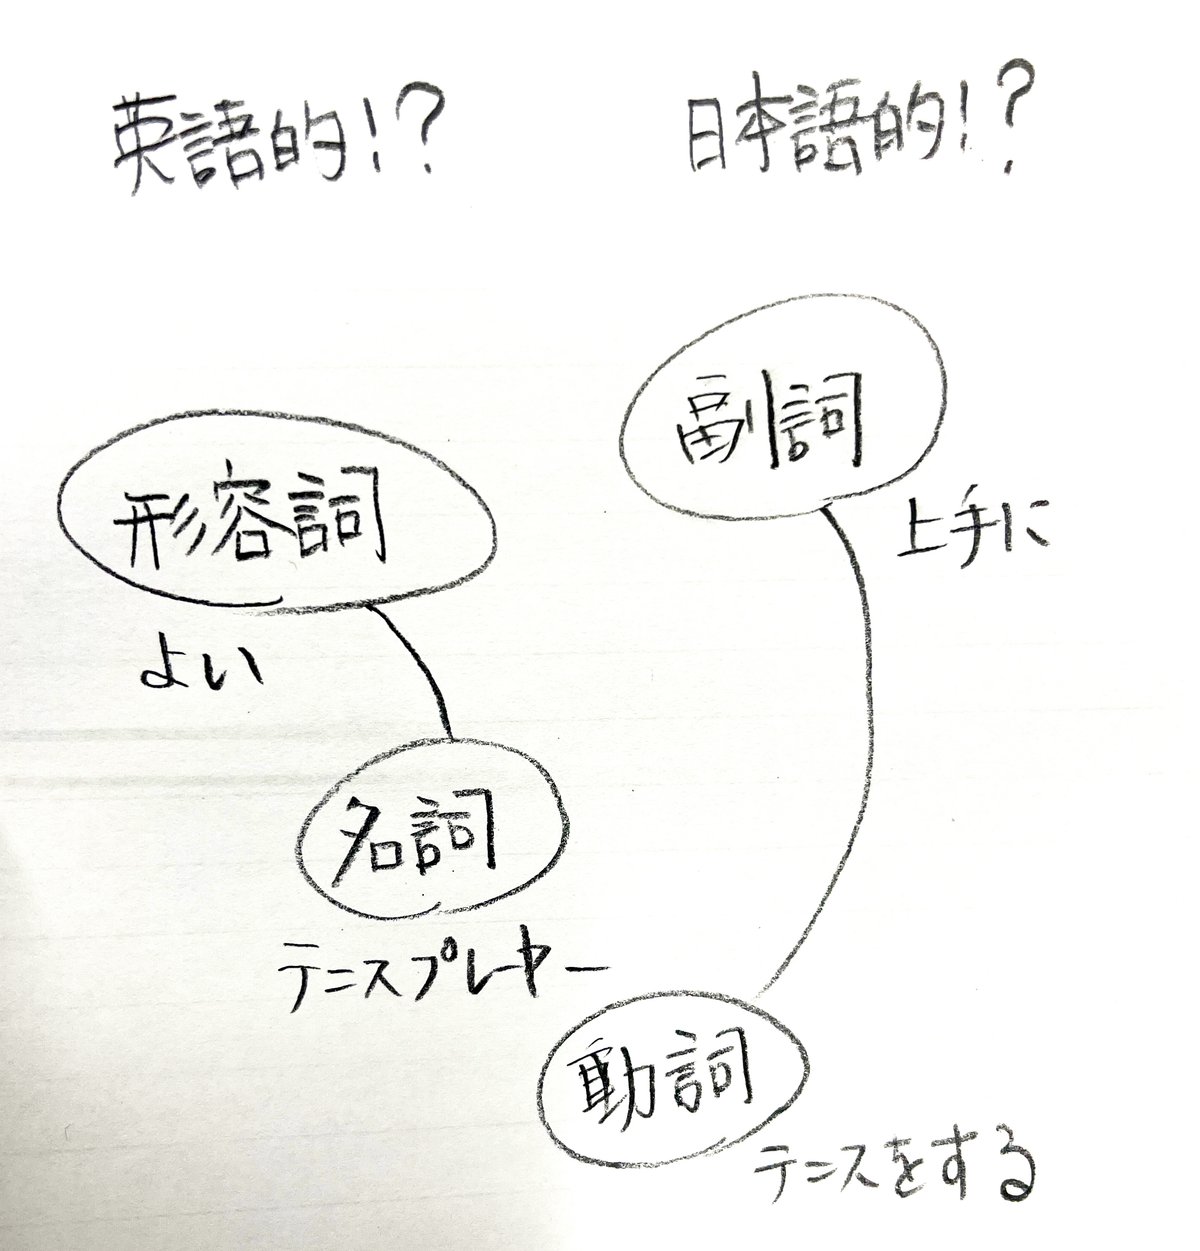 英語的!?
日本語的!?
副詞
上手に
形容詞
よい
名詞
テニスプレーヤー
動詞
テニスをする